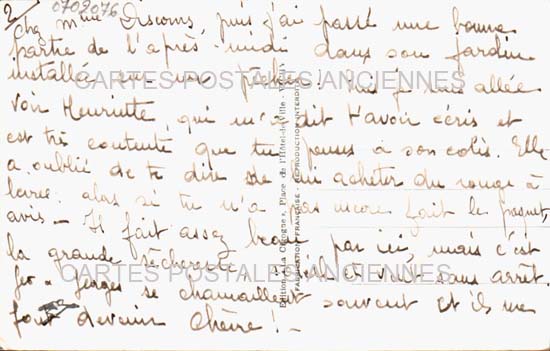 2/ 0702076
chez Mme Discorns, puis j'ai passé une bonne
partie de l'après-midi dans son jardin
installée sur un Puis je suis allée
CARTES POSTALES ANCIENNES
voir Henriette qui m'a dit t'avoir écris et
est très contente que tu penses à son colis. Elle
a oublié de te dire de lui acheter du rouge à
lèvres alors si tu n'a pas encore fait le paquet,
avis — Il fait assez beau par ici, mais c'est
la grande sécheresse.
CARTES POSTALES ANCIENNES
et Georges se chamaillent souvent et ils me
font devenir chèvre! —
Edition « La Cigogne », Place de l'Hôtel-de-Ville - Vichy
FABRICATION FRANÇAISE - REPRODUCTION INTERDITE